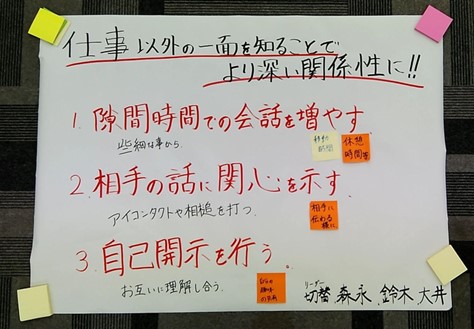 仕事以外の一面を知ることで
より深い関係性に!!
1.隙間時間での会話を増やす
些細な事から
移動
時間
休憩
時間等
2.相手の話に関心を示す
アイコンタクトや相槌を打つ.
相手に
伝わる
様に
3.自己開示を行う
お互いに理解し合う.
リーダー
切替 森永 鈴木 大井